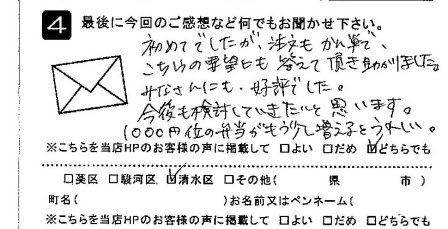 4 最後に今回のご感想など何でもお聞かせ下さい。
初めてでしたが、注文もかんたんで、
こちらの要望にも答えて頂き助かりました。
みなさんにも、好評でした。
今後も検討していきたいと思います。
1000円位の弁当がもう少し増えるとうれしい。
※こちらを当店HPのお客様の声に掲載して □よい □だめ ☑どちらでも
□葵区 □駿河区 ☑清水区 □その他( 県 市)
町名( )お名前又はペンネーム(
※こちらを当店HPのお客様の声に掲載して □よい □だめ □どちらでも